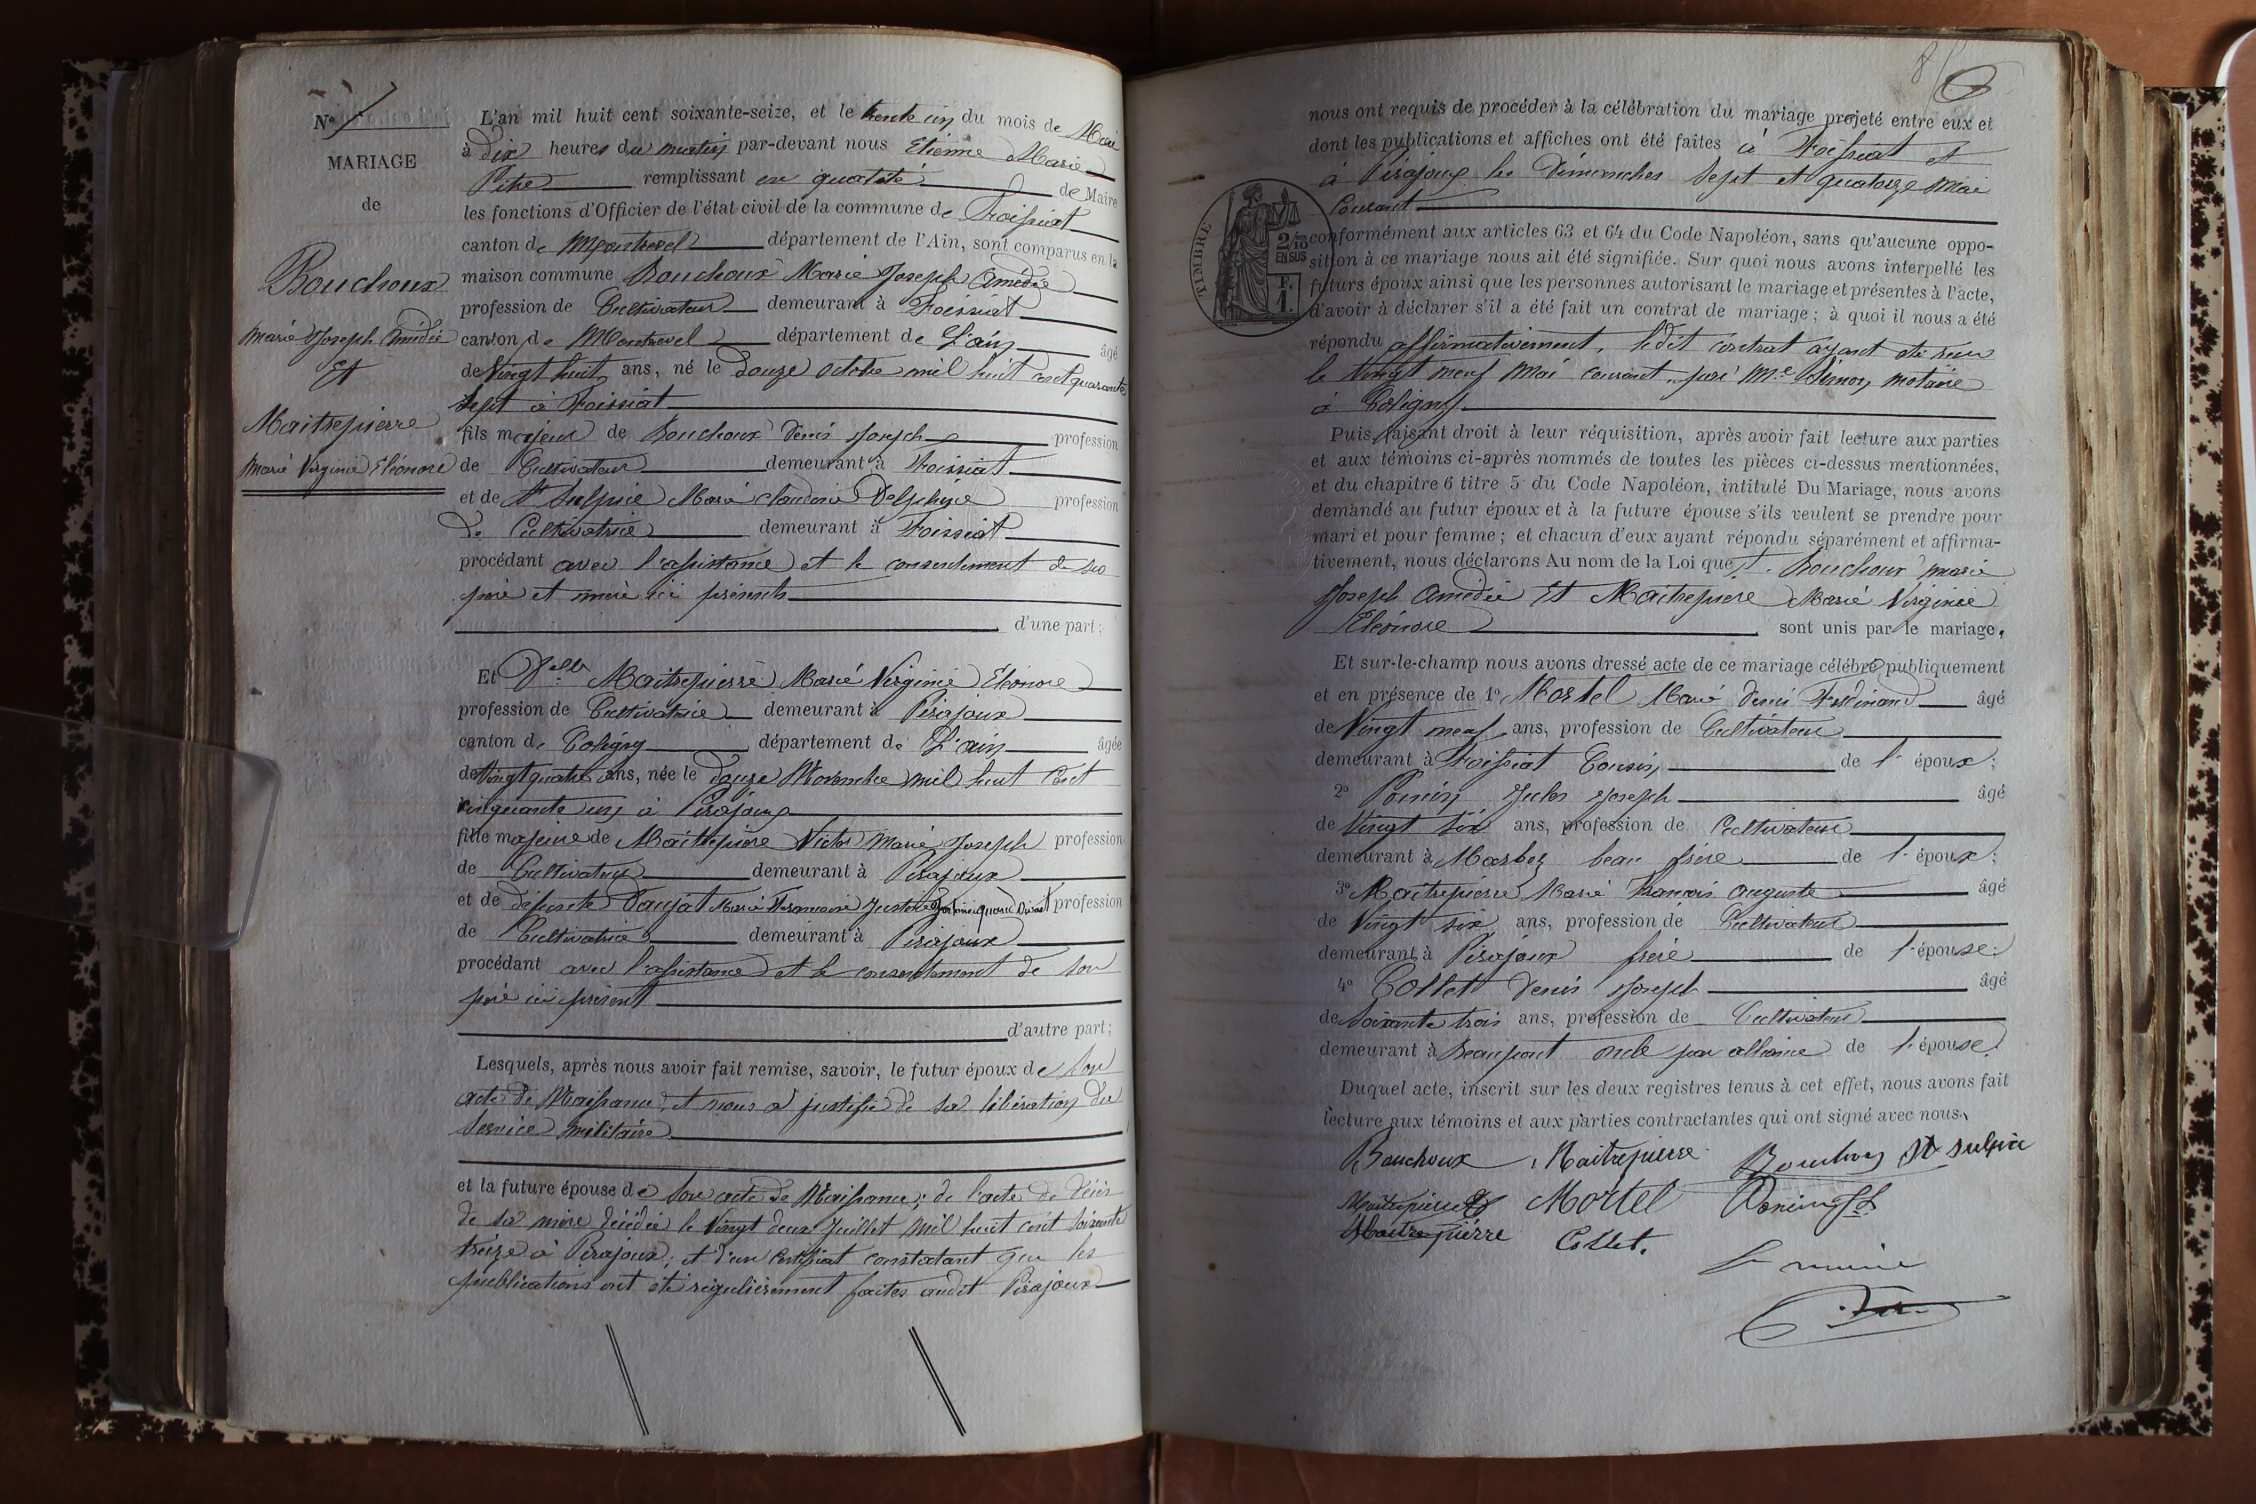 N°
MARIAGE
de
Bouchoux
Marie Joseph Amédée
Et
Maitrepierre
Marie Virginie Eléonore
L'an mil huit cent soixante-seize, et le trente un du mois de Mai
à dix heures du matin par-devant nous Etienne Marie
Pitre remplissant en qualité de Maire
les fonctions d'Officier de l'état civil de la commune de Foissiat
canton de Montrevel département de l'Ain, sont comparus en la
maison commune Bouchoux Marie Joseph Amédée
profession de Cultivateur demeurant à Foissiat
canton de Montrevel département de L'ain âgé
de Vingt huit ans, né le Douze octobre mil huit cent quarante
sept à Foissiat
fils majeur de Bouchoux Denis Joseph profession
de Cultivateur demeurant à Foissiat
et de St Sulpice Marie Claudine Delphine profession
de Cultivatrice demeurant à Foissiat
procédant avec l'assistance et le consentement de ses
père et mère ici présents
d'une part;
Et Delle Maitrepierre Marie Virginie Eléonore
profession de Cultivatrice demeurant à Pirajoux
canton de Coligny département de L'ain âgée
de Vingt quatre ans, née le douze Novembre mil huit cent
cinquante un à Pirajoux
fille majeure de Maitrepierre Victor Marie Joseph profession
de Cultivateur demeurant à Pirajoux
et de défunte Daujat Marie Françoise Justine quand vivait profession
de Cultivatrice demeurant à Pirajoux
procédant avec l'assistance et le consentement de son
père ici présent
d'autre part;
Lesquels, après nous avoir fait remise, savoir, le futur époux de Son
acte de Naissance, et nous a justifié de sa libération du
Service militaire
et la future épouse de Son acte de Naissance; de l'acte de décès
de sa mère décédée le Vingt deux Juillet mil huit cent soixante
treize à Pirajoux; et d'un Certificat constatant que les
publications ont été régulièrement faites audit Pirajoux
nous ont requis de procéder à la célébration du mariage projeté entre eux et
dont les publications et affiches ont été faites à Foissiat et
à Pirajoux les Dimanches Sept et quatorze Mai
Courant
TIMBRE
2/10
EN SUS
F.
1.
conformément aux articles 63 et 64 du Code Napoléon, sans qu'aucune oppo-
sition à ce mariage nous ait été signifiée. Sur quoi nous avons interpellé les
futurs époux ainsi que les personnes autorisant le mariage et présentes à l'acte,
d'avoir à déclarer s'il a été fait un contrat de mariage; à quoi il nous a été
répondu affirmativement, ledit contrat ayant été reçu
le Vingt neuf Mai courant par Me notaire
à Coligny
Puis, faisant droit à leur réquisition, après avoir fait lecture aux parties
et aux témoins ci-après nommés de toutes les pièces ci-dessus mentionnées,
et du chapitre 6 titre 5 du Code Napoléon, intitulé Du Mariage, nous avons
demandé au futur époux et à la future épouse s'ils veulent se prendre pour
mari et pour femme; et chacun d'eux ayant répondu séparément et affirma-
tivement, nous déclarons Au nom de la Loi que Bouchoux Marie
Joseph Amédée Et Maitrepierre Marie Virginie
Eléonore sont unis par le mariage.
Et sur-le-champ nous avons dressé acte de ce mariage célébré publiquement
et en présence de 1° Mortel Marie Denis Ferdinand âgé
de Vingt neuf ans, profession de Cultivateur
demeurant à Foissiat Cousin de l'époux;
2° Ponein Jules Joseph âgé
de Vingt six ans, profession de Cultivateur
demeurant à Marboz beau frère de l'époux;
3° Maitrepierre Marie François auguste âgé
de Vingt six ans, profession de Cultivateur
demeurant à Pirajoux frère de l'épouse:
4° Collet Denis Joseph âgé
de Soixante trois ans, profession de Cultivateur
demeurant à Beaupont oncle par alliance de l'épouse.
Duquel acte, inscrit sur les deux registres tenus à cet effet, nous avons fait
lecture aux témoins et aux parties contractantes qui ont signé avec nous.
Bouchoux Maitrepierre Bouchoux St sulpice
Maitrepierre Mortel Ponein
Maitrepierre Collet.
Le maire